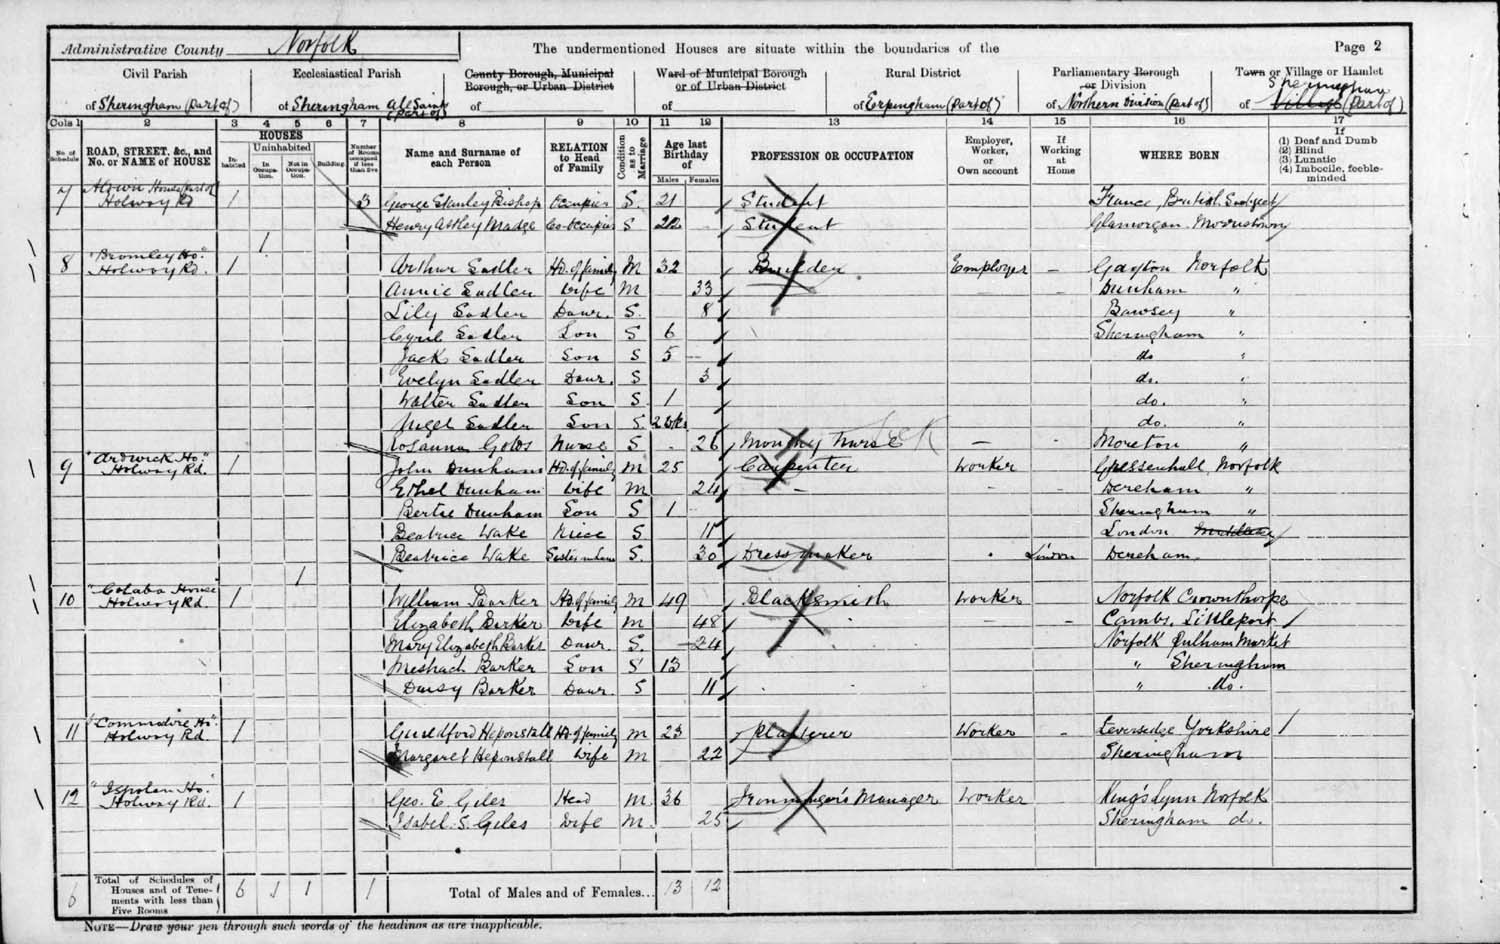 Administrative County Norfolk
The undermentioned Houses are situate within the boundaries of the
Page 2
Civil Parish of Sheringham (Part of)
Ecclesiastical Parish of Sheringham All Saints (part of)
County Borough, Municipal Borough, or Urban District of
Ward of Municipal Borough or of Urban District of
Rural District of Erpingham (Part of)
Parliamentary Borough or Division of Northern Division (part of)
Town or Village or Hamlet of Sheringham (Part of)
Cols 1 2 3 4 5 6 7 8 9 10 11 12 13 14 15 16 17
No. of Schedule
ROAD, STREET, &c., and No. or NAME of HOUSE
HOUSES
Inhabited
Uninhabited
In Occupation.
Not in Occupation.
Building.
Number of Rooms occupied if less than five
Name and Surname of each Person
RELATION to Head of Family
Condition as to Marriage
Age last Birthday of
Males Females
PROFESSION OR OCCUPATION
Employer, Worker, or Own account
If Working at Home
WHERE BORN
If
(1) Deaf and Dumb
(2) Blind
(3) Lunatic
(4) Imbecile, feeble-minded
7 House (part of) Holway Rd 1 3 George Stanley Bishop Occupier S. 21 Student France, British Subject
Henry Astley Madge Co-occupier S 22 Student Glamorgan Morristown
1
8 "Bromley Ho." Holway Rd. 1 Arthur Sadler Hd. of family M 32 Builder Employer - Gayton Norfolk
Annie Sadler Wife M 33 Dunham "
Lily Sadler Daur. S. 8 Bawsey "
Cyril Sadler Son S 6 Sheringham "
Jack Sadler Son S 5 do "
Evelyn Sadler Daur. S 3 do. "
Walter Sadler Son S 1 do. "
Nigel Sadler Son S. 2 Wks do. "
Rosanna Nurse S 26 Monthly nurse - Moreton "
9 "Ardwick Ho." Holway Rd. 1 John Dunham Hd. of family M 25 Carpenter Worker Gressenhall Norfolk
Ethel Dunham Wife M 24 - Dereham "
Bertie Dunham Son S 1 Sheringham "
Beatrice Wake Niece S 11 London Middlesex
Beatrice Wake Sister in law S. 30 Dressmaker Dereham
1
10 "Colaba House" Holway Rd. 1 William Barker Hd. of family M 49 Blacksmith Worker - Norfolk Crownthorpe
Elizabeth Barker Wife M 48 Cambs. Littleport
Mary Elizabeth Barker Daur. S. 24 Norfolk Pulham Market
Meshach Barker Son S 13 " Sheringham
Daisy Barker Daur. S 11 " do.
11 "Commodore Ho" Holway Rd 1 Guildford Heponstall Hd. of family M 23 Plasterer Worker - Yorkshire
Margaret Heponstall Wife M 22 Sheringham
12 Ho." Holway Rd. 1 Geo. E. Giles Head M 36 Ironmonger's Manager Worker King's Lynn Norfolk
Isabel S. Giles Wife M. 25 Sheringham do.
6 Total of Schedules of Houses and of Tenements with less than Five Rooms 6 1 1 1 Total of Males and of Females... 13 12
NOTE—Draw your pen through such words of the headings as are inapplicable.